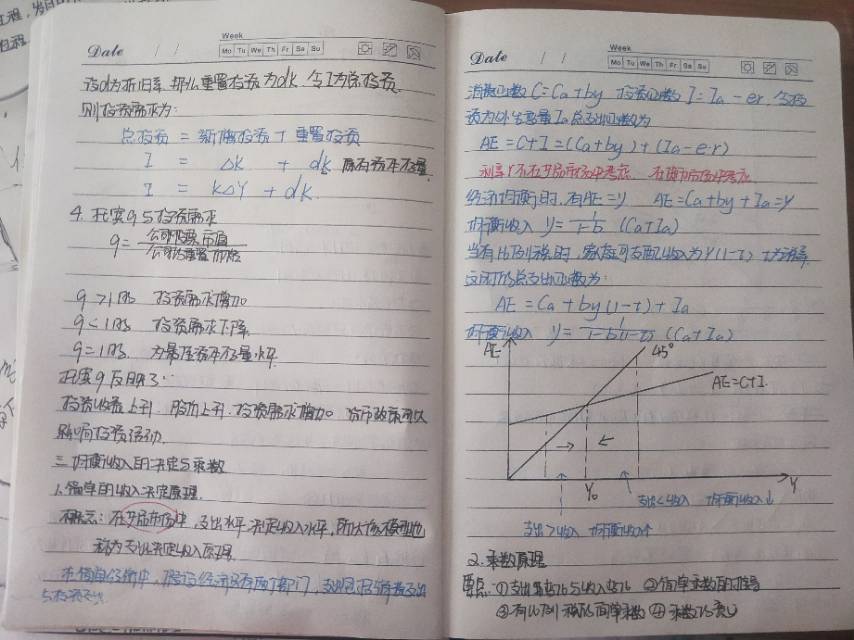 Date / /
Week
Mo Tu We Th Fr Sa Su
设d为折旧率,那么重置投资为dk.令I为总投资.
则投资需求为:
总投资 = 新增投资 + 重置投资
I = Δk + dk 原有资本存量
I = kΔY + dk.
4. 托宾q与投资需求
q = 公司股票市值 / 公司的重置价格
q>1时 投资需求增加
q<1时 投资需求下降
q=1时. 为最佳资本存量水平
托宾q反映了:
投资收益上升. 股价上升. 投资需求增加。货币政策可以
影响投资活动.
三.均衡收入的决定与乘数
1.简单的收入决定原理.
概念: 在产品市场中,支出水平决定收入水平,所以该模型也
称为支出决定收入原理.
在简单经济中,假设经济只有两个部门,支出包括消费支出
与投资支出
Date / /
Week
Mo Tu We Th Fr Sa Su
消费函数C=Ca+by 投资函数I=Ia-er.令投
资为外生变量Ia总支出函数为
AE=C+I=(Ca+by)+(Ia-e·r)
利率r不在产品市场中考虑. 在货币市场中考虑
经济均衡时,有AE=y AE=Ca+by+Ia=y
均衡收入 y=1/1-b (Ca+Ia)
当有比例税时,家庭可支配收入为Y(1-t) t为税率,
这时的总支出函数为:
AE=Ca+by(1-t)+Ia
均衡收入 y=1/1-b(1-t) (Ca+Ia)
AE
45°
AE=C+I
Y₀
Y
支出<收入 均衡收入↓
支出>收入 均衡收入↑
2.乘数原理
要点: ①支出变化与收入变化 ②简单乘数的推导
③有比例税的简单乘数 ④乘数的意义